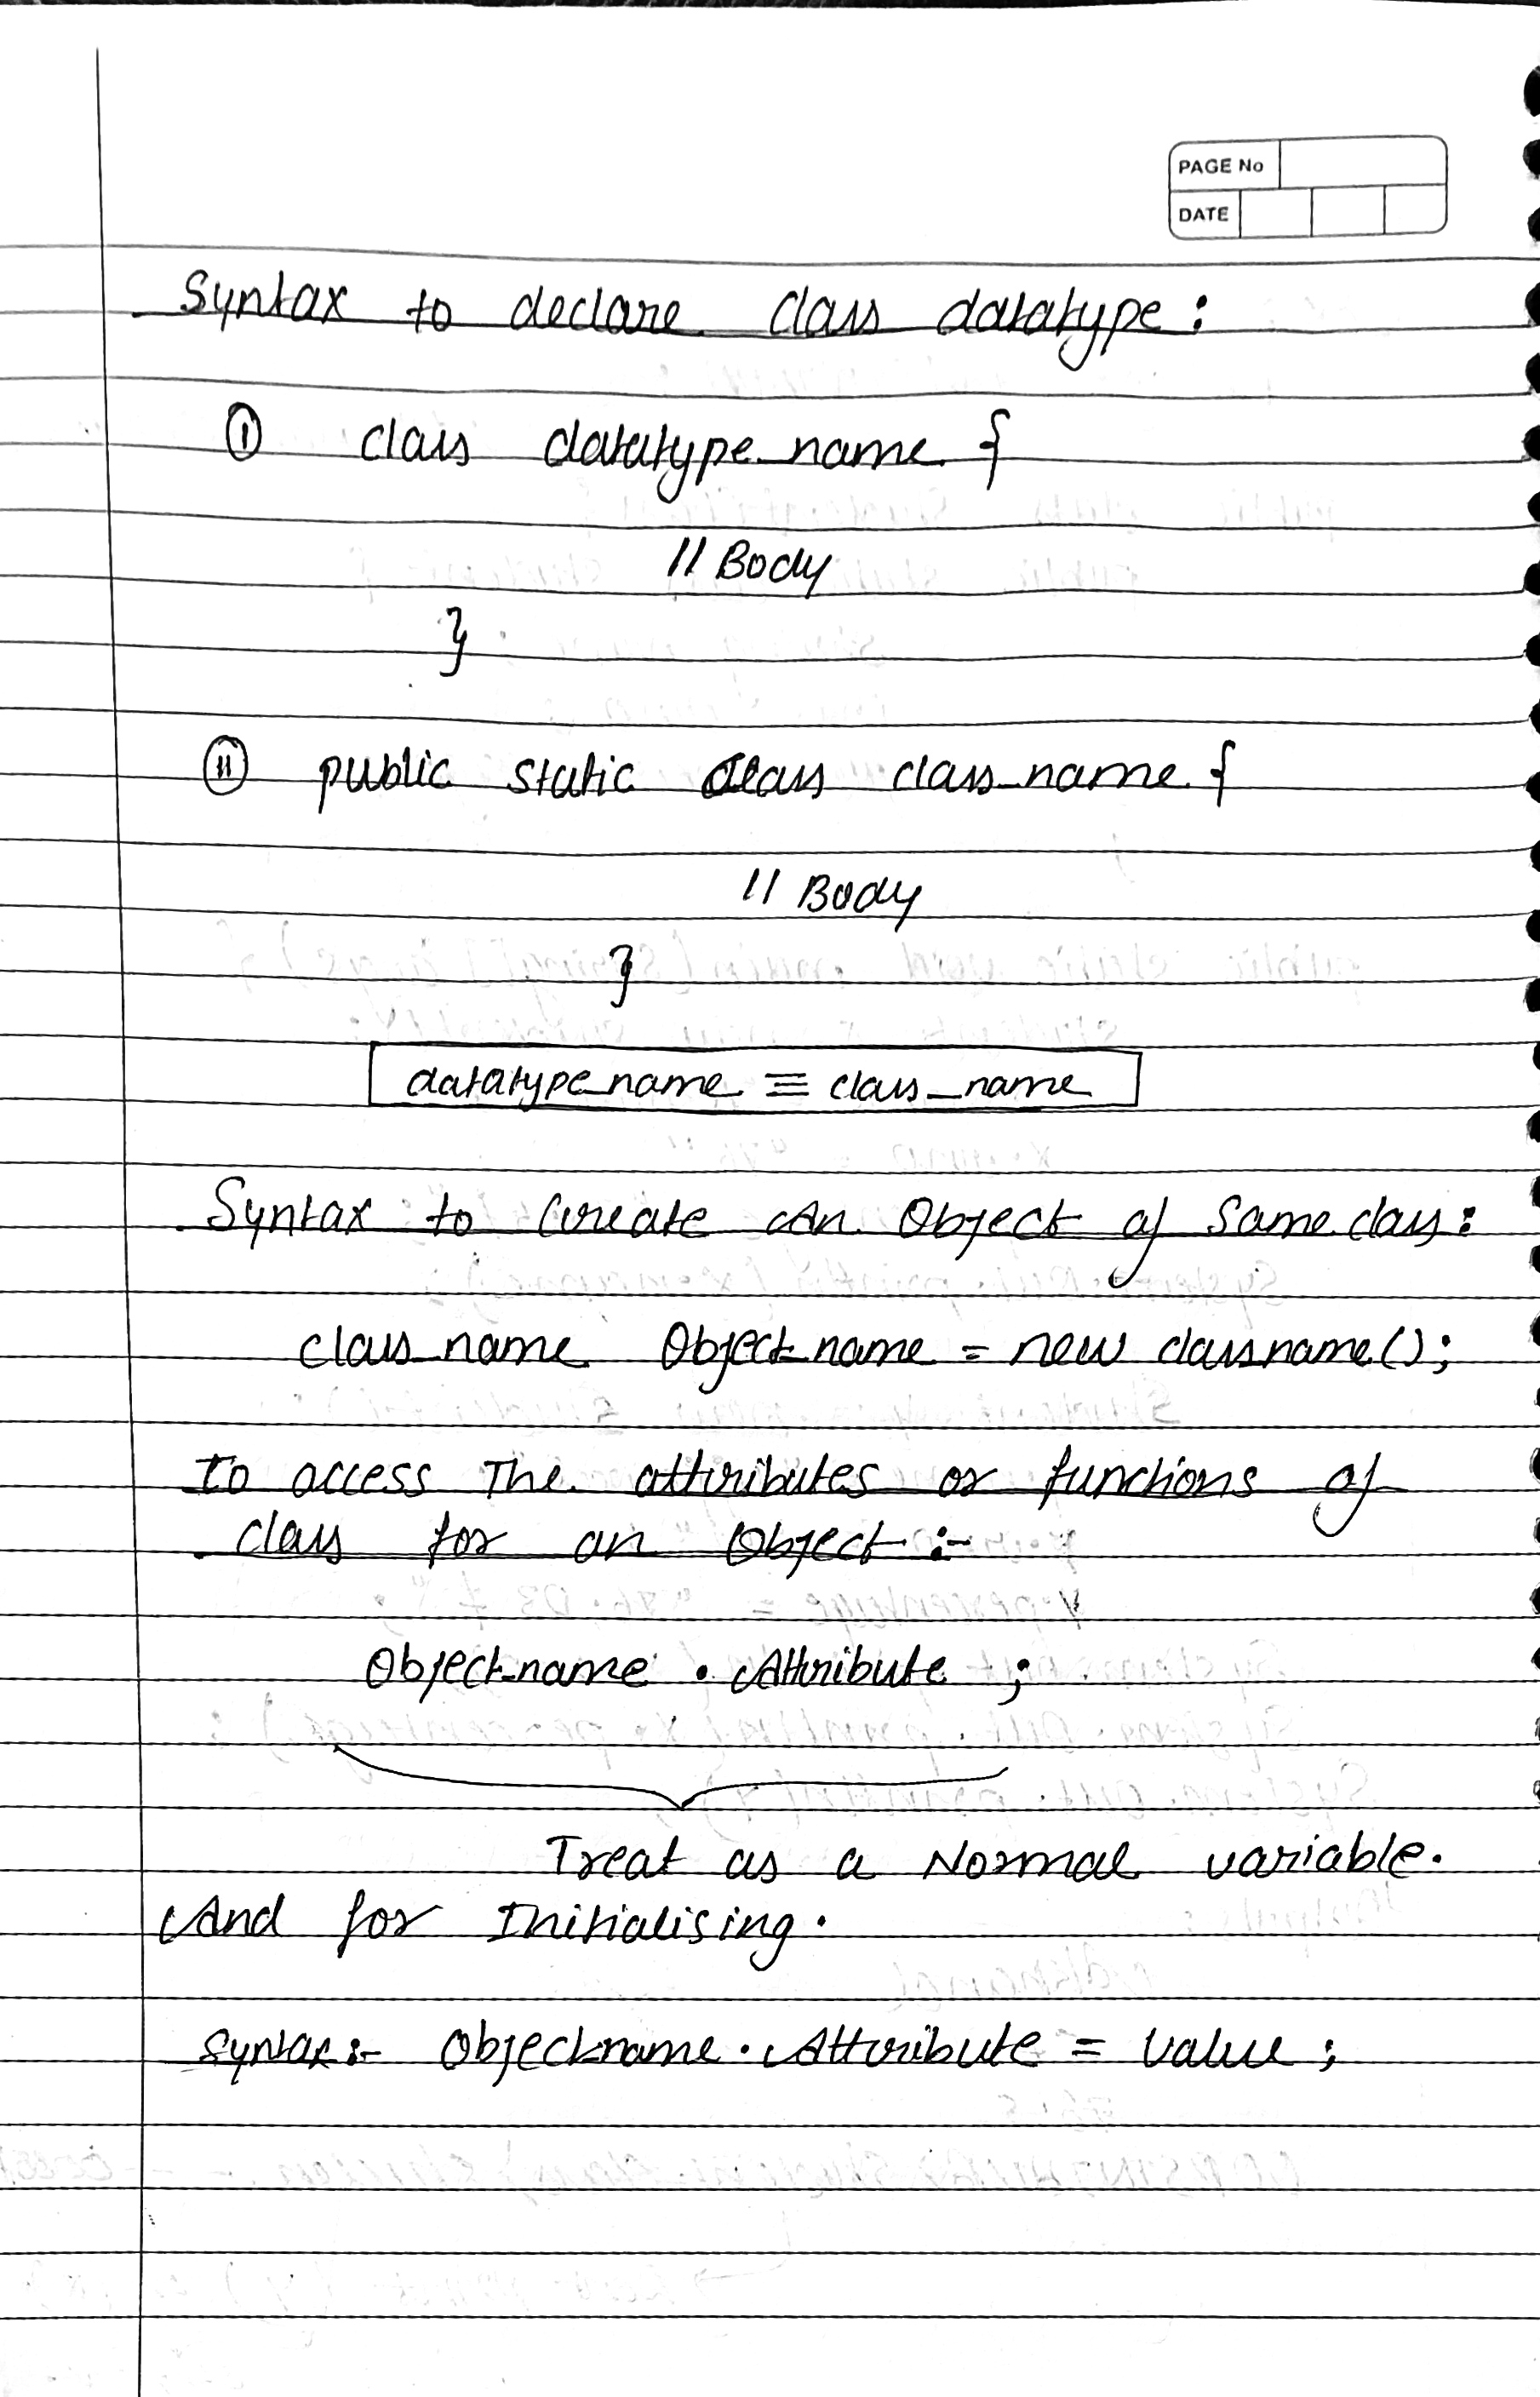 PAGE No
DATE
Syntax to declare class datatype:
① class datatype_name {
// Body
}
ⓘⓘ public static class class_name {
// Body
}
datatype_name ≡ class_name
Syntax to Create An Object of Same class:
class_name Object_name = new classname();
To access The attributes or functions of
class for an Object :-
Object_name . Attribute ;
Treat as a Normal variable.
And for Initialising.
Syntax:- Object_name . Attribute = Value ;